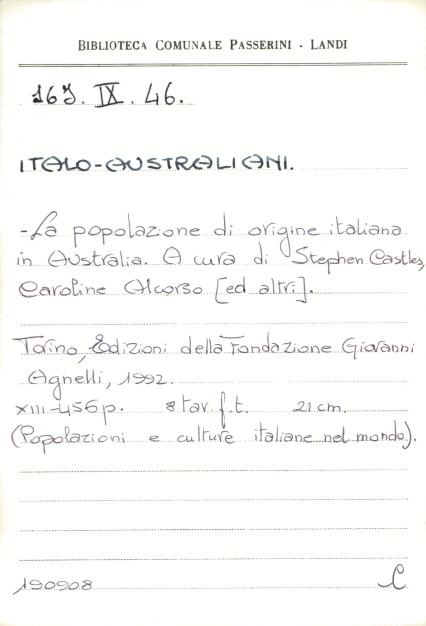 BIBLIOTECA COMUNALE PASSERINI - LANDI
16J. IX. 46.
ITALO-AUSTRALIANI.
-La popolazione di origine italiana
in Australia. A cura di Stephen Castles,
Caroline Alcorso [ed altri].
Torino, Edizioni della Fondazione Giovanni
Agnelli, 1992.
XIII-456p. 8 tav. f.t. 21 cm.
(Popolazioni e culture italiane nel mondo).
190908
C